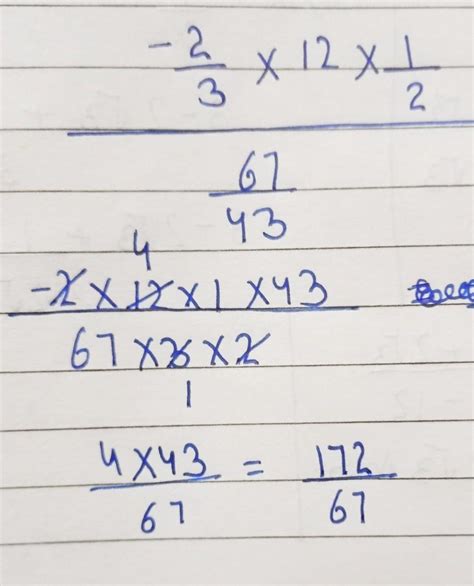 -2/3 × 12 × 1/2
67/43
4
-2 × 12 × 1 × 43
67 × 3 × 2
1
4 × 43/67 = 172/67